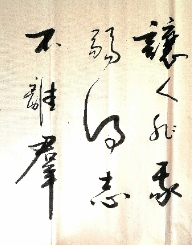 讓人非我
弱得志
不離羣